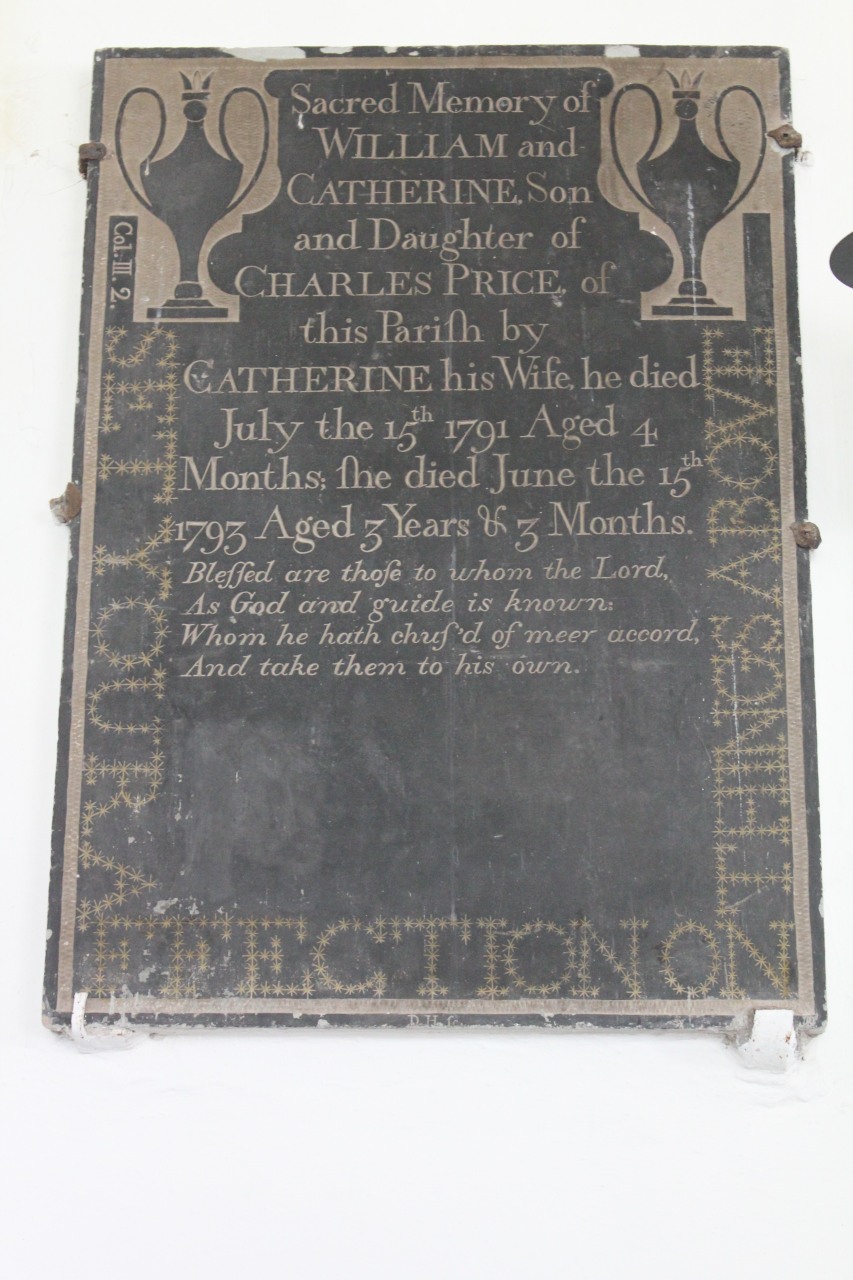 Sacred Memory of
WILLIAM and
CATHERINE, Son
and Daughter of
CHARLES PRICE, of
this Pariſh by
CATHERINE his Wife, he died
July the 15th 1791 Aged 4
Months; ſhe died June the 15th
1793 Aged 3 Years & 3 Months.
Bleſſed are thoſe to whom the Lord,
As God and guide is known:
Whom he hath chuſ'd of meer accord,
And take them to his own.
Col: III. 2.
SET YOUR A
FFECTION ON
THINGS ABOVE